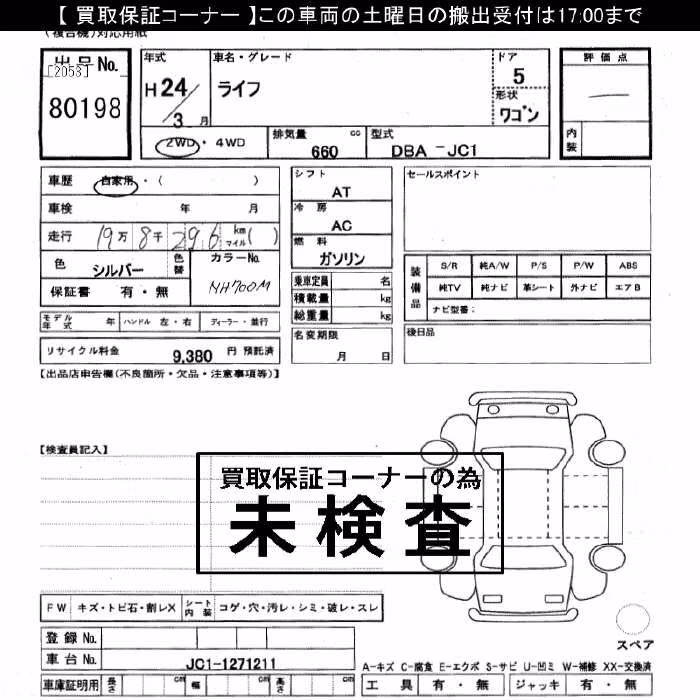 【 買取保証コーナー 】この車両の土曜日の搬出受付は17:00まで
(複合機)対応用紙
出品No.
[2053]
80198
年式
H24/3月
車名・グレード
ライフ
ドア
5
形状
ワゴン
評価点
内装
2WD・4WD
排気量 660 cc
型式 DBA -JC1
車歴 自家用・( )
車検 年 月
走行 19万8千296 km マイル( )
色 シルバー 色替
カラーNo. NH700M
保証書 有・無
シフト
AT
冷房
AC
燃料
ガソリン
乗車定員 名
積載量 kg
総重量 kg
セールスポイント
装備品
S/R 純A/W P/S P/W ABS
純TV 純ナビ 革シート 外ナビ エアB
ナビ型番:
モデル年式 年 ハンドル 左・右 ディーラー・並行
名変期限
月 日
後日品
リサイクル料金 9,380 円 預託済
【出品店申告欄(不良箇所・欠品・注意事項等)】
【検査員記入】
買取保証コーナーの為
未検査
FW キズ・トビ石・割レX シート内装 コゲ・穴・汚レ・シミ・破レ・スレ
スペア
登録No.
車台No. JC1-1271211
A-キズ C-腐食 E-エクボ S-サビ U-凹ミ W-補修 XX-交換済
車庫証明用 長さ cm 幅 cm 高さ cm
工具 有・無 ジャッキ 有・無